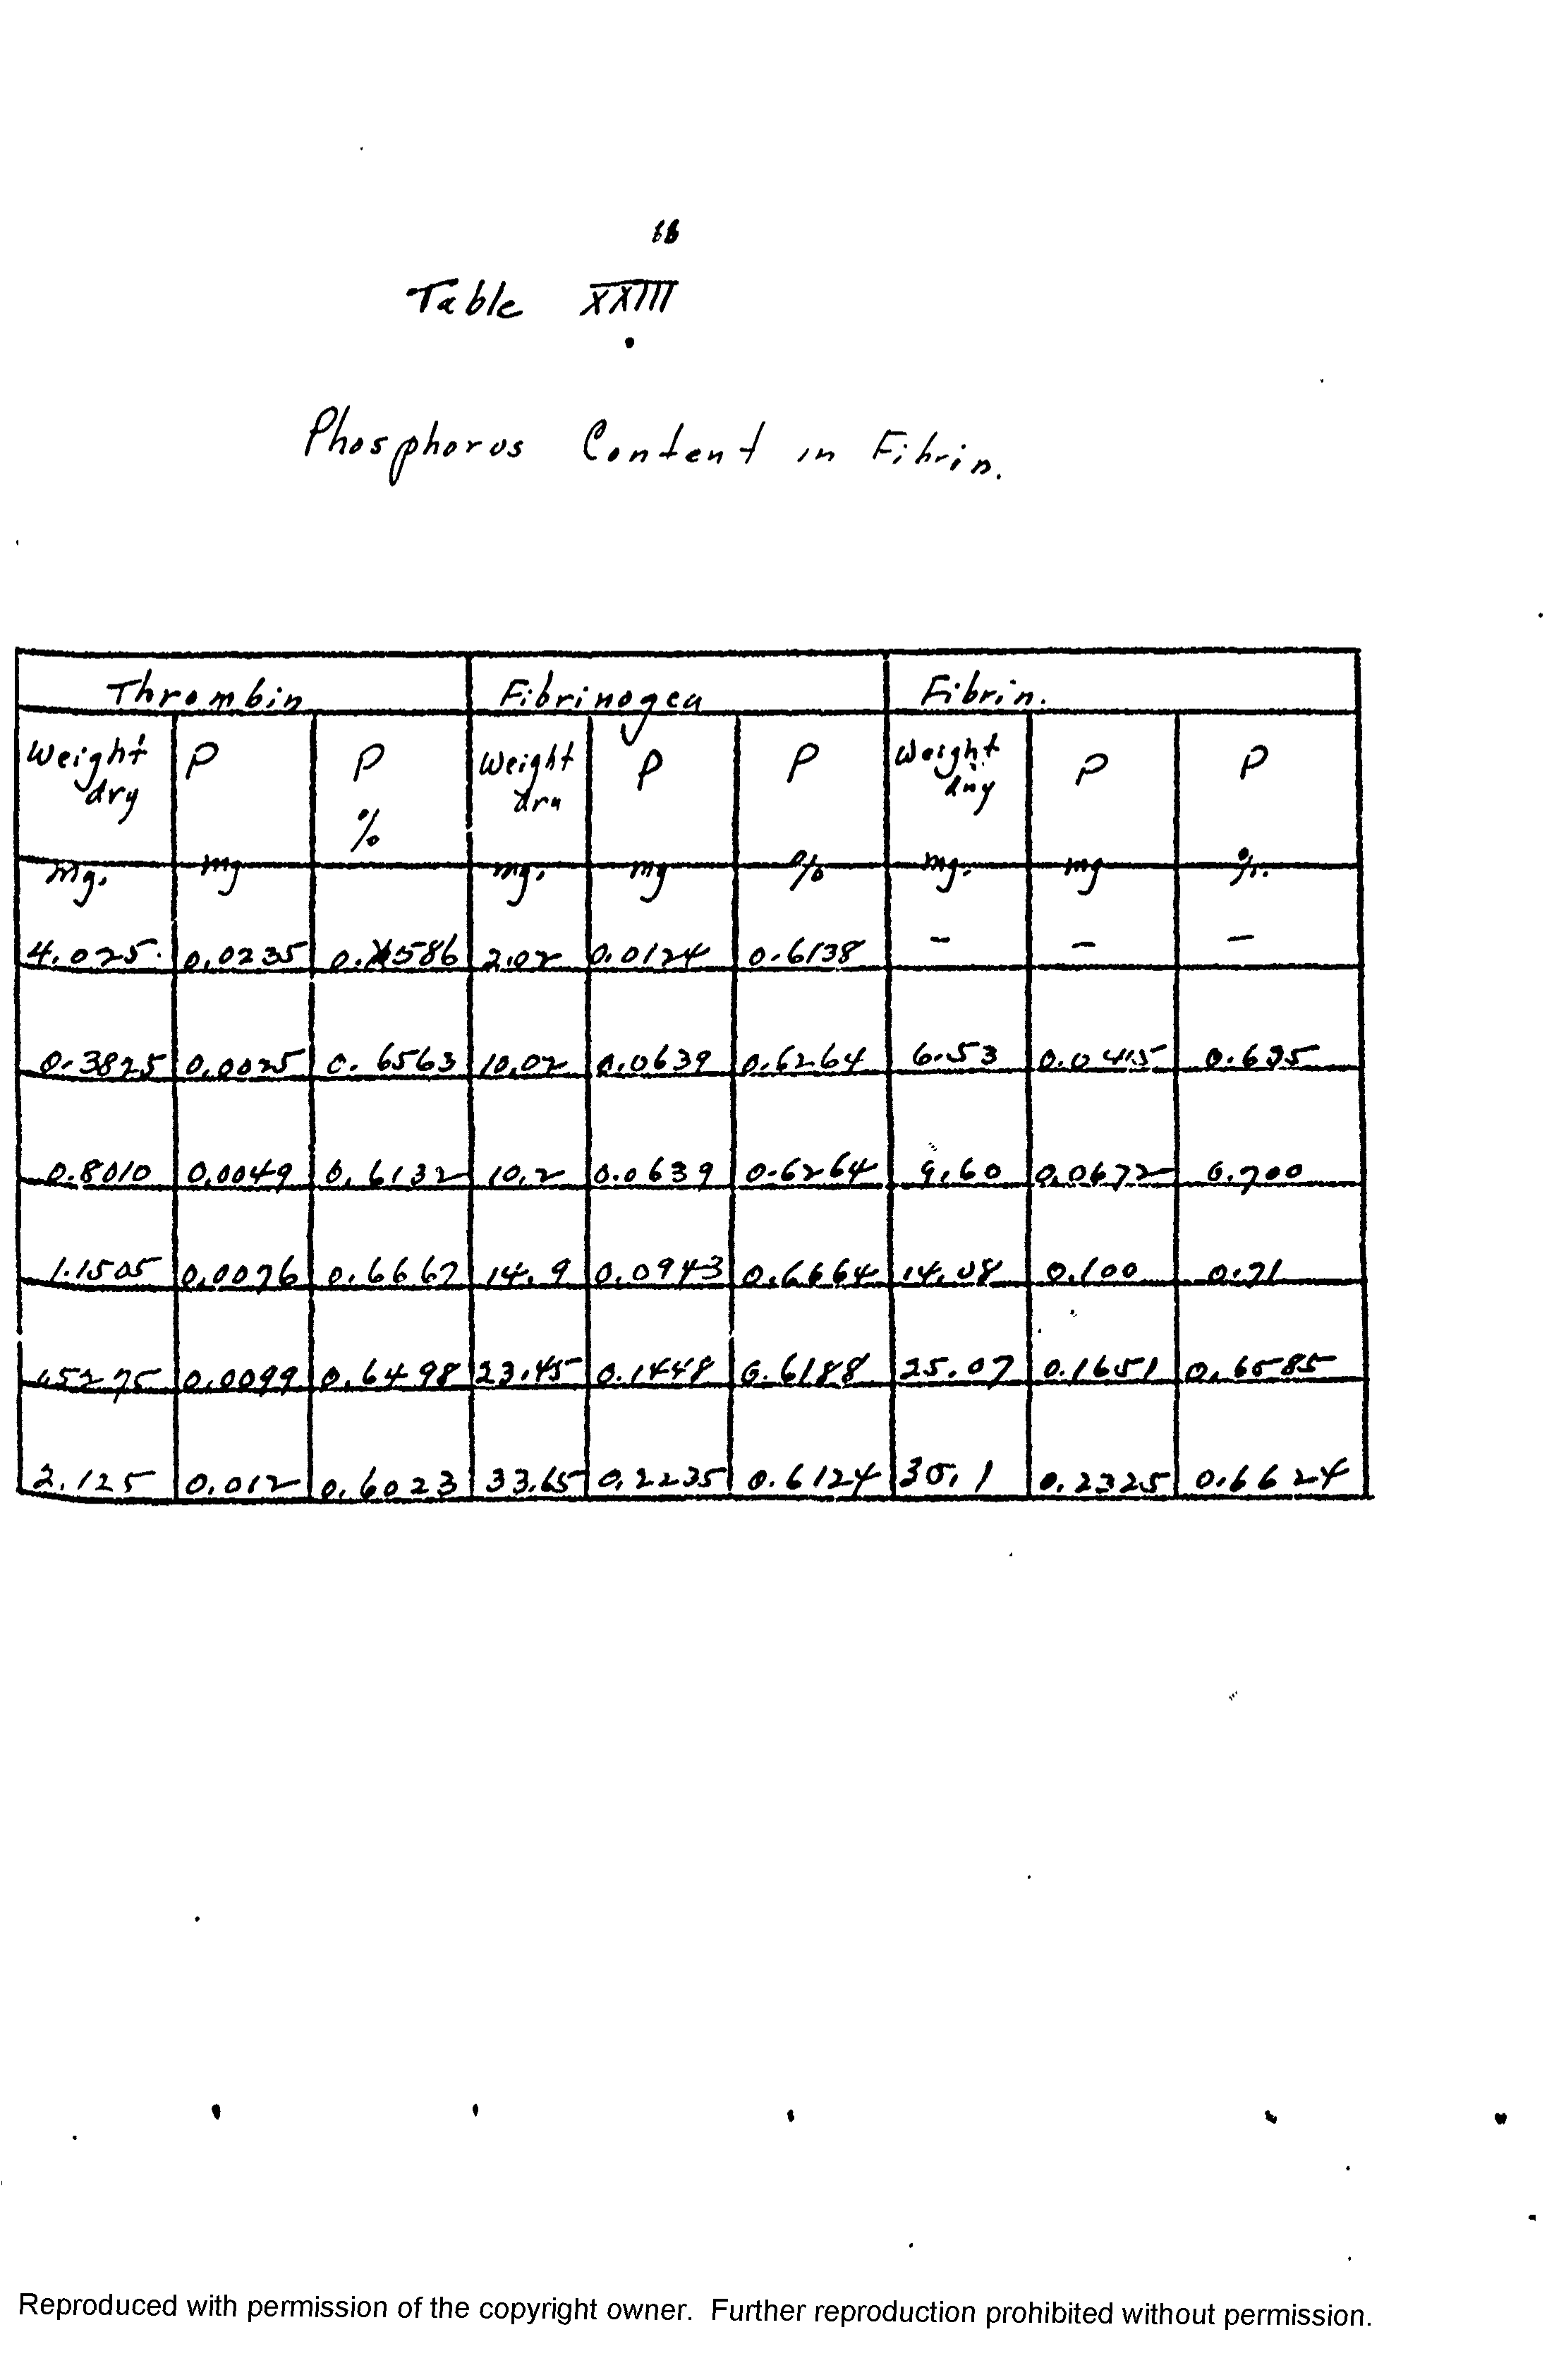 66
Table XXIII
Phosphorus Content in Fibrin.
Thrombin Fibrinogen Fibrin.
Weight dry P P % Weight dry P P Weight dry P P
mg. mg mg. mg % mg. mg %.
4.025 0.0235 0.586 2.02 0.0124 0.6138 - - -
0.3825 0.0025 0.6563 10.02 0.0639 0.6264 6.53 0.0415 0.635
0.8010 0.0049 0.6132 10.2 0.0639 0.6264 9.60 0.0672 0.700
1.1505 0.0076 0.6667 14.9 0.0943 0.6664 14.08 0.100 0.71
1.5275 0.0099 0.6498 23.45 0.1448 0.6188 25.07 0.1651 0.6585
2.125 0.012 0.6023 33.65 0.2235 0.6124 35.1 0.2325 0.6624
Reproduced with permission of the copyright owner. Further reproduction prohibited without permission.